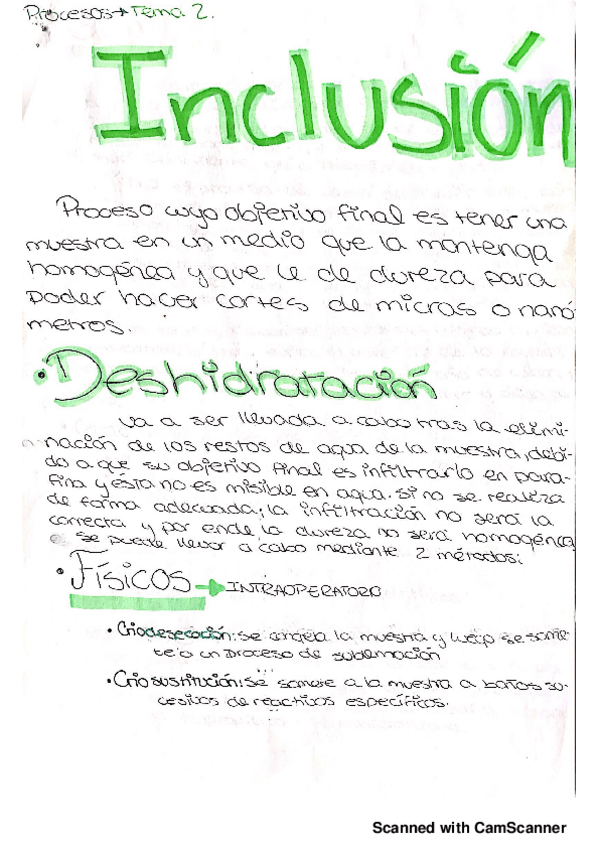 Procesos → Tema 2.
Inclusión
Proceso cuyo objetivo final es tener una
muestra en un medio que la mantenga
homogénea y que le de dureza para
poder hacer cortes de micras o nanó-
metros.
• Deshidratación
va a ser llevada a cabo tras la elimi-
nación de los restos de agua de la muestra, debi-
do a que su objetivo final es infiltrarlo en para-
fina y ésta no es misible en agua. si no se realiza
de forma adecuada; la infiltración no será la
correcta y por ende la dureza no será homogénea
• Se puede llevar a cabo mediante 2 métodos:
• Físicos → INTRAOPERATORO
• Criodesecación: se congela la muestra y luego se some-
te a un proceso de sublimación
• Criosustitución: se somete a la muestra a baños su-
cesivos de reactivos específicos.
Scanned with CamScanner